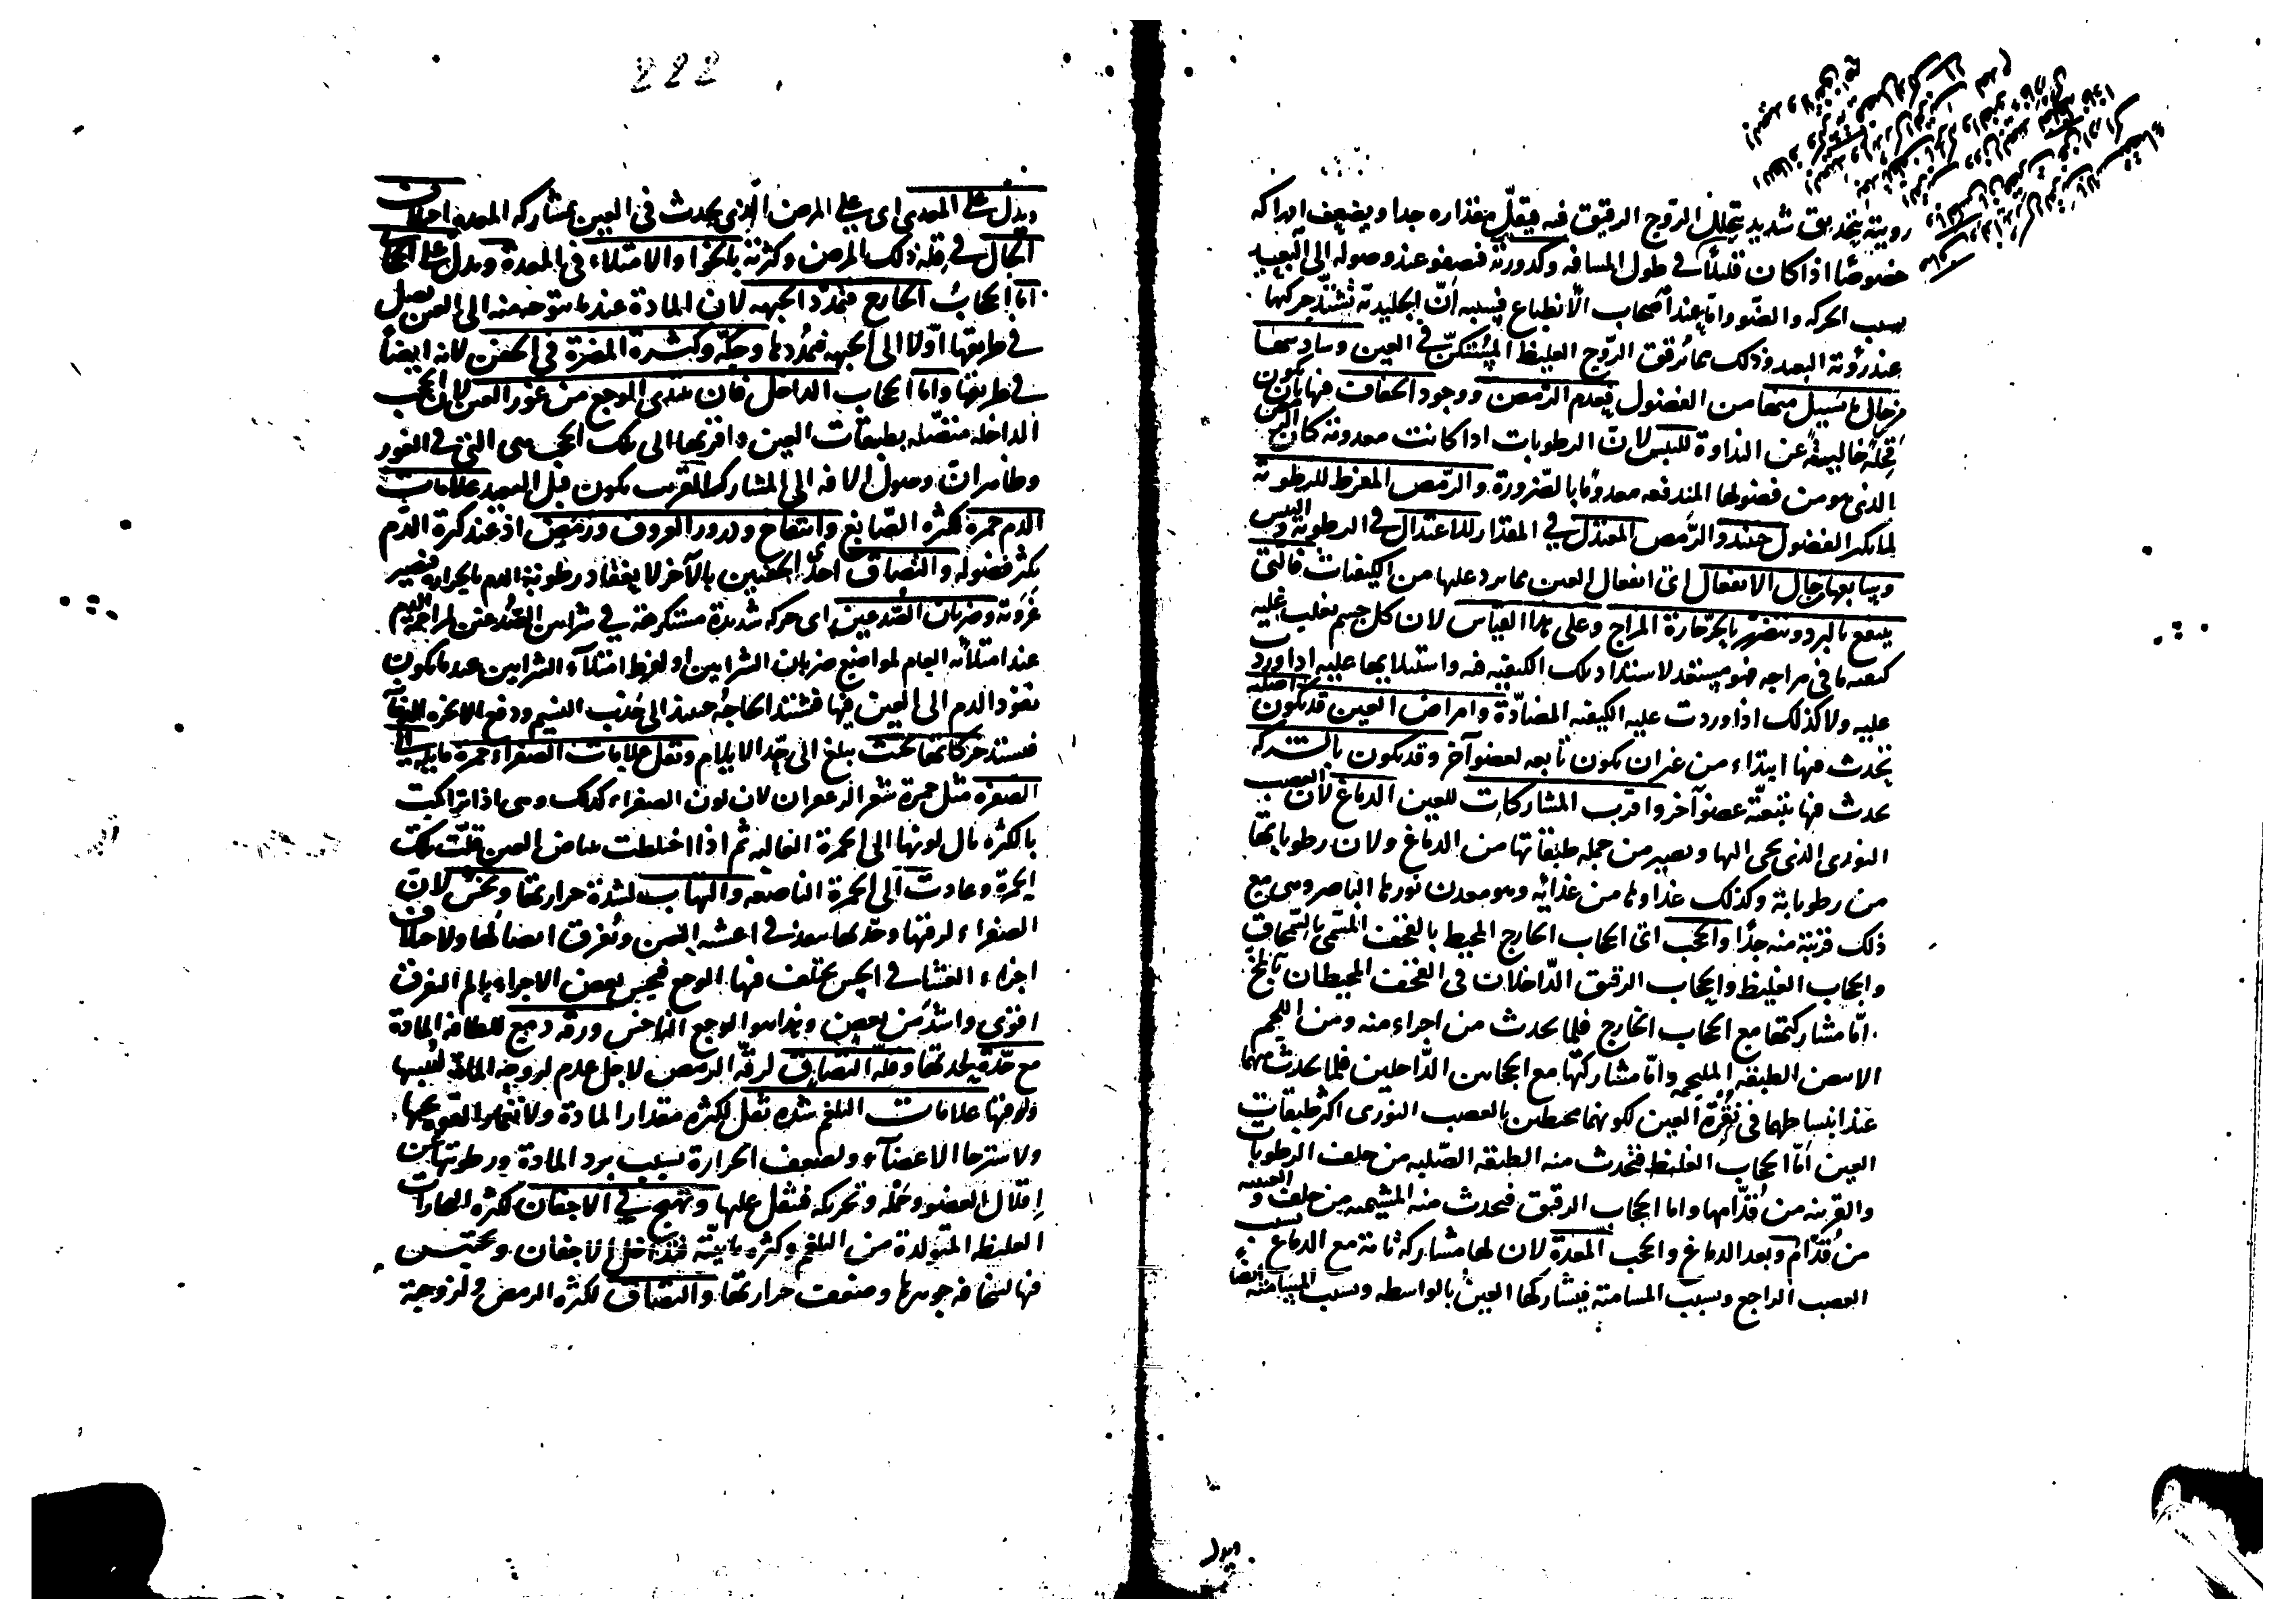 رويته بتحديق شديد يتحلل الروح الرقيق فيه فيقل مقداره جدا ويضعف ادراكه
خصوصًا اذا كان قليلًا في طول المسافه وكدورته فتصفو عند وصوله الى البعيد
بسبب الحركه والضو واما عند اصحاب الانطباع فسببه ان الجليدية تشتد حركتها
عند رؤية البعيد وذلك مما يرقق الروح الغليظ في العين وسادسها
من حال ما يسيل منها من الفضول فعدم الرمص ووجود الجفاف فيها بان يكون
قحلة خالية عن النداوة لليبس لان الرطوبات اذا كانت معدومة كان الرمص
الذي هو من فضولها المندفعه معدومًا بالضرورة والرمص المفرط للرطوبة
لما يكثر الفضول حينئذ والرمص المعتدل في المقدار للاعتدال في الرطوبة واليبس
وسابعها حال الانفعال اى انفعال العين مما يرد عليها من الكيفيات فالتي
ينتفع بالبرد وتتضرر بالحر حارة المزاج وعلى هذا القياس لان كل جسم يغلب عليه
كيفيه ما في مزاجه فهو مستعد لاشتداد تلك الكيفيه فيه واستيلائها عليه اذا ورد
عليه ولا كذلك اذا وردت عليه الكيفيه المضادة وامراض العين قد تكون اصليه
تحدث فيها ابتداء من غير ان يكون تابعه لعضو آخر وقد يكون بالشركه
يحدث فيها بتبعية عضو آخر واقرب المشاركات للعين الدماغ لان العصب
النورى الذى يجي اليها ويصير من جمله طبقاتها من الدماغ ولان رطوباتها
من رطوباته وكذلك غذاؤها من غذائه وهو معدن نورها الباصر وهى مع
ذلك قريبة منه جدًا والحجب اى الحجاب الخارج المحيط بالقحف المسمى بالسمحاق
والحجاب الغليظ والحجاب الرقيق الداخلان فى القحف المحيطان بالمخ
اما مشاركتها مع الحجاب الخارج فلما يحدث من اجزاء منه ومن اللحم
الابيض الطبقه الملتحمه واما مشاركتها مع الحجابين الداخلين فلما يحدث منهما
عند انبساطهما فى نقرة العين لكونهما محيطين بالعصب النورى اكثر طبقات
العين اما الحجاب الغليظ فتحدث منه الطبقه الصلبه من خلف الرطوبات
والقرنيه من قدامها واما الحجاب الرقيق فتحدث منه المشيميه من خلف والعنبيه
من قدام وبعد الدماغ والحجب المعدة لان لها مشاركة تامة مع الدماغ بسبب
العصب الراجع وبسبب المسامتة فيشاركها العين بالواسطه وبسبب المسامته ايضا
ويدل
222
ويدل على المعدى اى على المرض الذى يحدث فى العين بمشاركه المعدة اختلاف
الحال في قلة ذلك المرض وكثرته بالخوا والامتلاء فى المعدة ويدل على الحجا
اما الحجاب الخارج فتمدد الجبهه لان المادة عند ما يتوجه منه الى العين يصل
في طريقها اولا الى الجبهه فتمددها وحكة وكثرة المضرة فى الجفن لانه ايضًا
في طريقها واما الحجاب الداخل فان يبتدى الوجع من غور العين لان الحجب
الداخله متصله بطبقات العين واقربها الى تلك الحجب هى التى في الغور
وظاهر ان وصول الافه الى المشارك القريب يكون قبل البعيد علامات
الدم حمرة لكثرة الصابغ وانتفاخ ودرور العروق ورمص اذ عند كثرة الدم
يكثر فضوله والتصاق احد الجفنين بالآخر لانعقاد رطوبة الدم بالحرارة فتصير
غروية وضربان الصدغين اى حركه شديدة مستكرهة في شرايين الصدغين لمزاحمة الدم
عند امتلائه العام لمواضع ضربان الشرايين او لفرط امتلآء الشرايين عند ما يكون
نفوذ الدم الى العين فيها فتشتد الحاجة حينئذ الى جذب النسيم ودفع الابخره الدخانيه
فتشتد حركاتها بحيث يبلغ الى حد الايلام وثقل علامات الصفراء حمرة مايله الى
الصفره مثل حمرة شعر الزعفران لان لون الصفراء كذلك وهى اذا تراكمت
بالكثره مال لونها الى الحمرة القانيه ثم اذا اختلطت ببياض العين قلت تلك
الحمرة وعادت الى الحمرة الناصعه والتهاب لشدة حرارتها ونخس لان
الصفراء لرقتها وحدتها تنفذ في اغشيه العين وتفرق اتصالها ولاختلاف
اجزاء الغشا في الحس يختلف فيها الوجع فيحس بعض الاجزاء بالم التفرق
اقوى واشد من بعض وهذا هو الوجع الناخس ورقة دمع للطافه المادة
مع حدة لحدتها وقلة التصاق لرقة الرمص لاجل عدم لزوجة المادة لقلبها
ولا فيها علامات البلغم شدة ثقل لكثرة مقدار المادة ولا
ولاسترخا الاعضاء ولضعف الحرارة بسبب برد المادة ورطوبتها عن
اقلال العضو وحمله وتحريكه فتثقل عليها وتهيج في الاجفان لكثرة البخارات
الغليظه المتولدة من البلغم وكثرة مائيته فتداخل الاجفان وتحتبس
فيها لسخافه جوهرها وضعف حرارتها والتصاق لكثرة الرمص ولزوجة